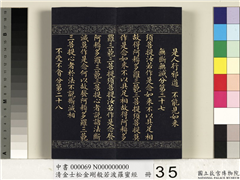 是人行邪道不能見如來
無斷無滅分第二十七
須菩提汝若作是念如來不以具足相
故得阿耨多羅三藐三菩提須菩提莫
作是念如來不以具足相故得阿耨多
羅三藐三菩提須菩提汝若作是念發
阿耨多羅三藐三菩提心者說諸法斷
滅莫作是念何以故發阿耨多羅三藐
三菩提心者於法不說斷滅相
不受不貪分第二十八
中書 000069 N000000000
清金士松金剛般若波羅蜜經 冊
35
國立故宮博物院